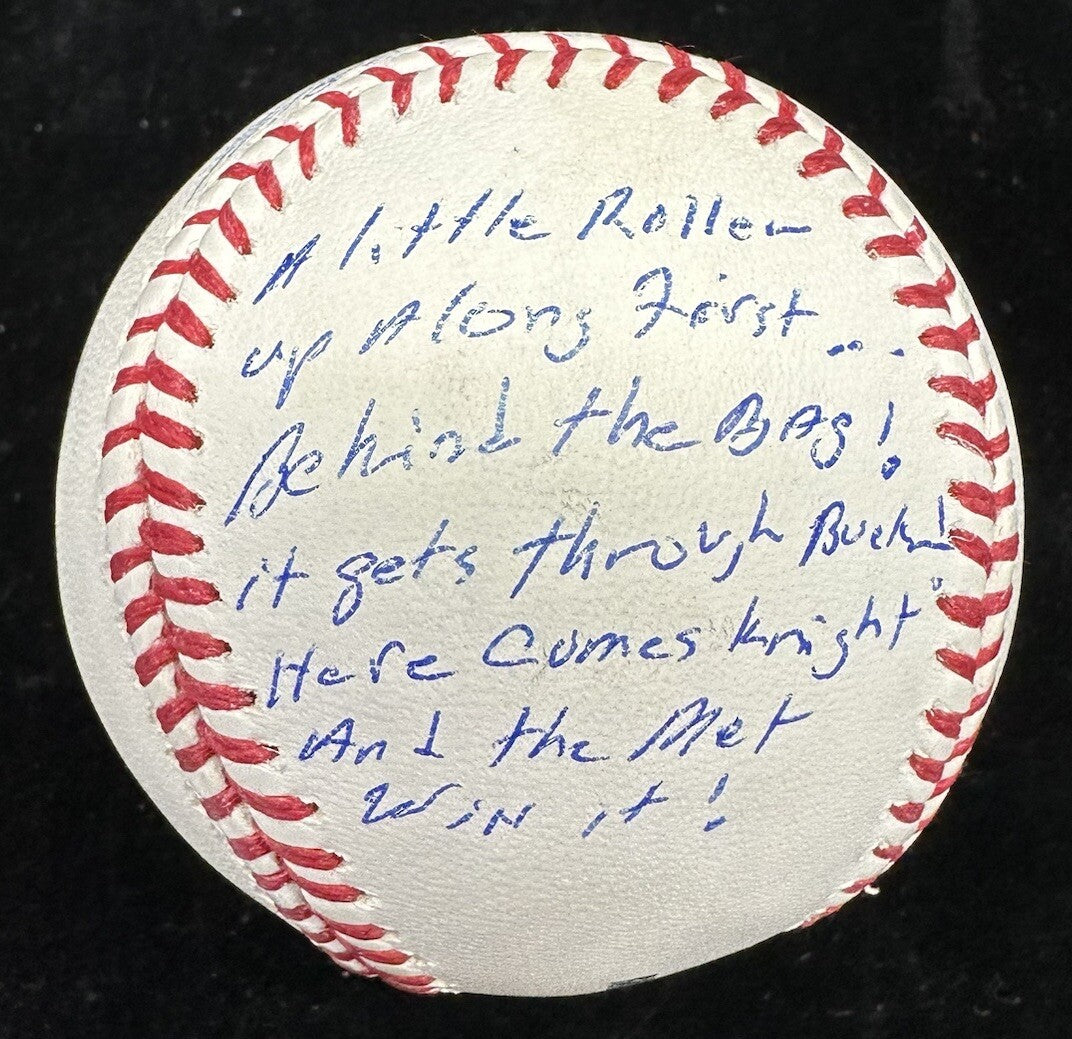 A little Roller
up Along First...
Behind the BAg!
it gets through Buckn!
Here Comes Knight
And the Met
Win it!